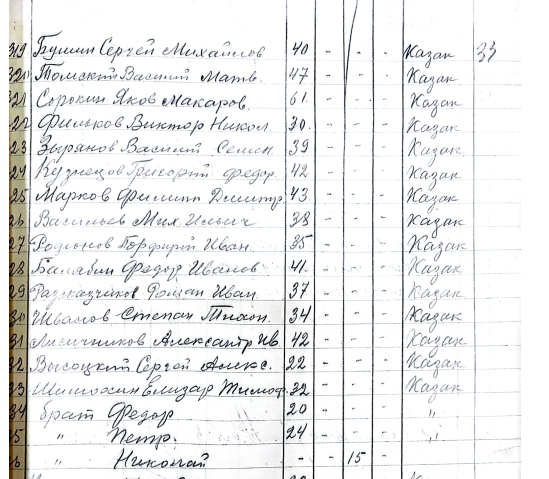 319 Бушин Сергей Михайлов 40 - - - Казак 33
320 Томский Василий Матв. 47 - - - Казак
21 Сорокин Яков Макаров. 61. - - - Казак
22 Фильков Виктор Никол 30. - - - Казак
23 Зырянов Василий Семен. 39 - - - Казак
24 Кузнецов Григорий Федор. 42 - - - Казак
25 Марков Филипп Дмитр. 43. - - - Казак
26 Васильев Мих Ильич 38 - - - Казак
27 Родионов Порфирий Иван. 35 - - - Казак
28 Балябин Федор Иванов 41. - - - Казак
29 Разказчиков Роман Иван 37 - - - Казак
30 Иванов Степан Тихон. 34 - - - Казак
31 Лисичников Александр Ив. 42 - - - Казак
32 Высоцкий Сергей Алекс. 22 - - - Казак
33 Елизар Тимоф. 32 - - - Казак
34 брат Федор 20 - - - "
35 " Петр. 24 - - - "
" Николай - - 15 -